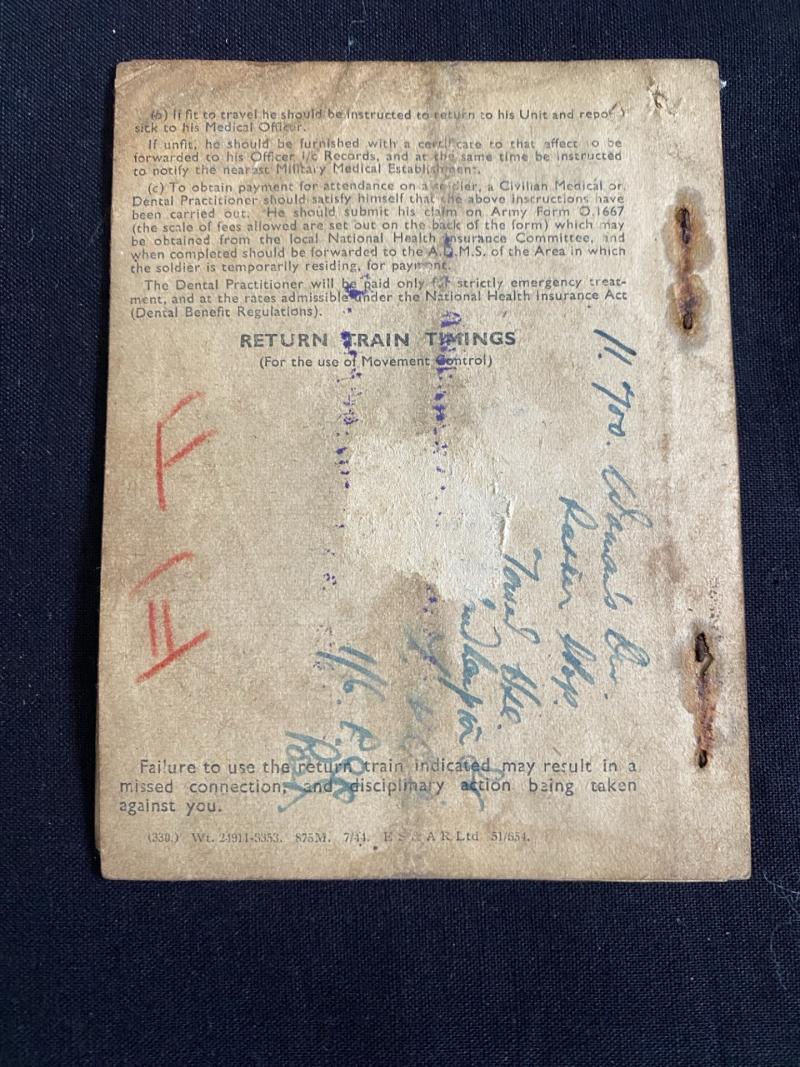 (b) If fit to travel he should be instructed to return to his Unit and repo
sick to his Medical Officer.
If unfit, he should be furnished with a certificate to that affect to be
forwarded to his Officer i/c Records, and at the same time be instructed
to notify the nearest Military Medical Establishment.
(c) To obtain payment for attendance on a soldier, a Civilian Medical or
Dental Practitioner should satisfy himself that the above instructions have
been carried out. He should submit his claim on Army Form O.1667
(the scale of fees allowed are set out on the back of the form) which may
be obtained from the local National Health Insurance Committee, and
when completed should be forwarded to the A.D.M.S. of the Area in which
the soldier is temporarily residing, for payment.
The Dental Practitioner will be paid only for strictly emergency treat-
ment, and at the rates admissible under the National Health Insurance Act
(Dental Benefit Regulations).
RETURN TRAIN TIMINGS
(For the use of Movement Control)
Failure to use the return train indicated may result in a
missed connection, and disciplinary action being taken
against you.
(330.) Wt. 24911-5353. 875M. 7/44. E S & A R Ltd 51/654.
Woman's